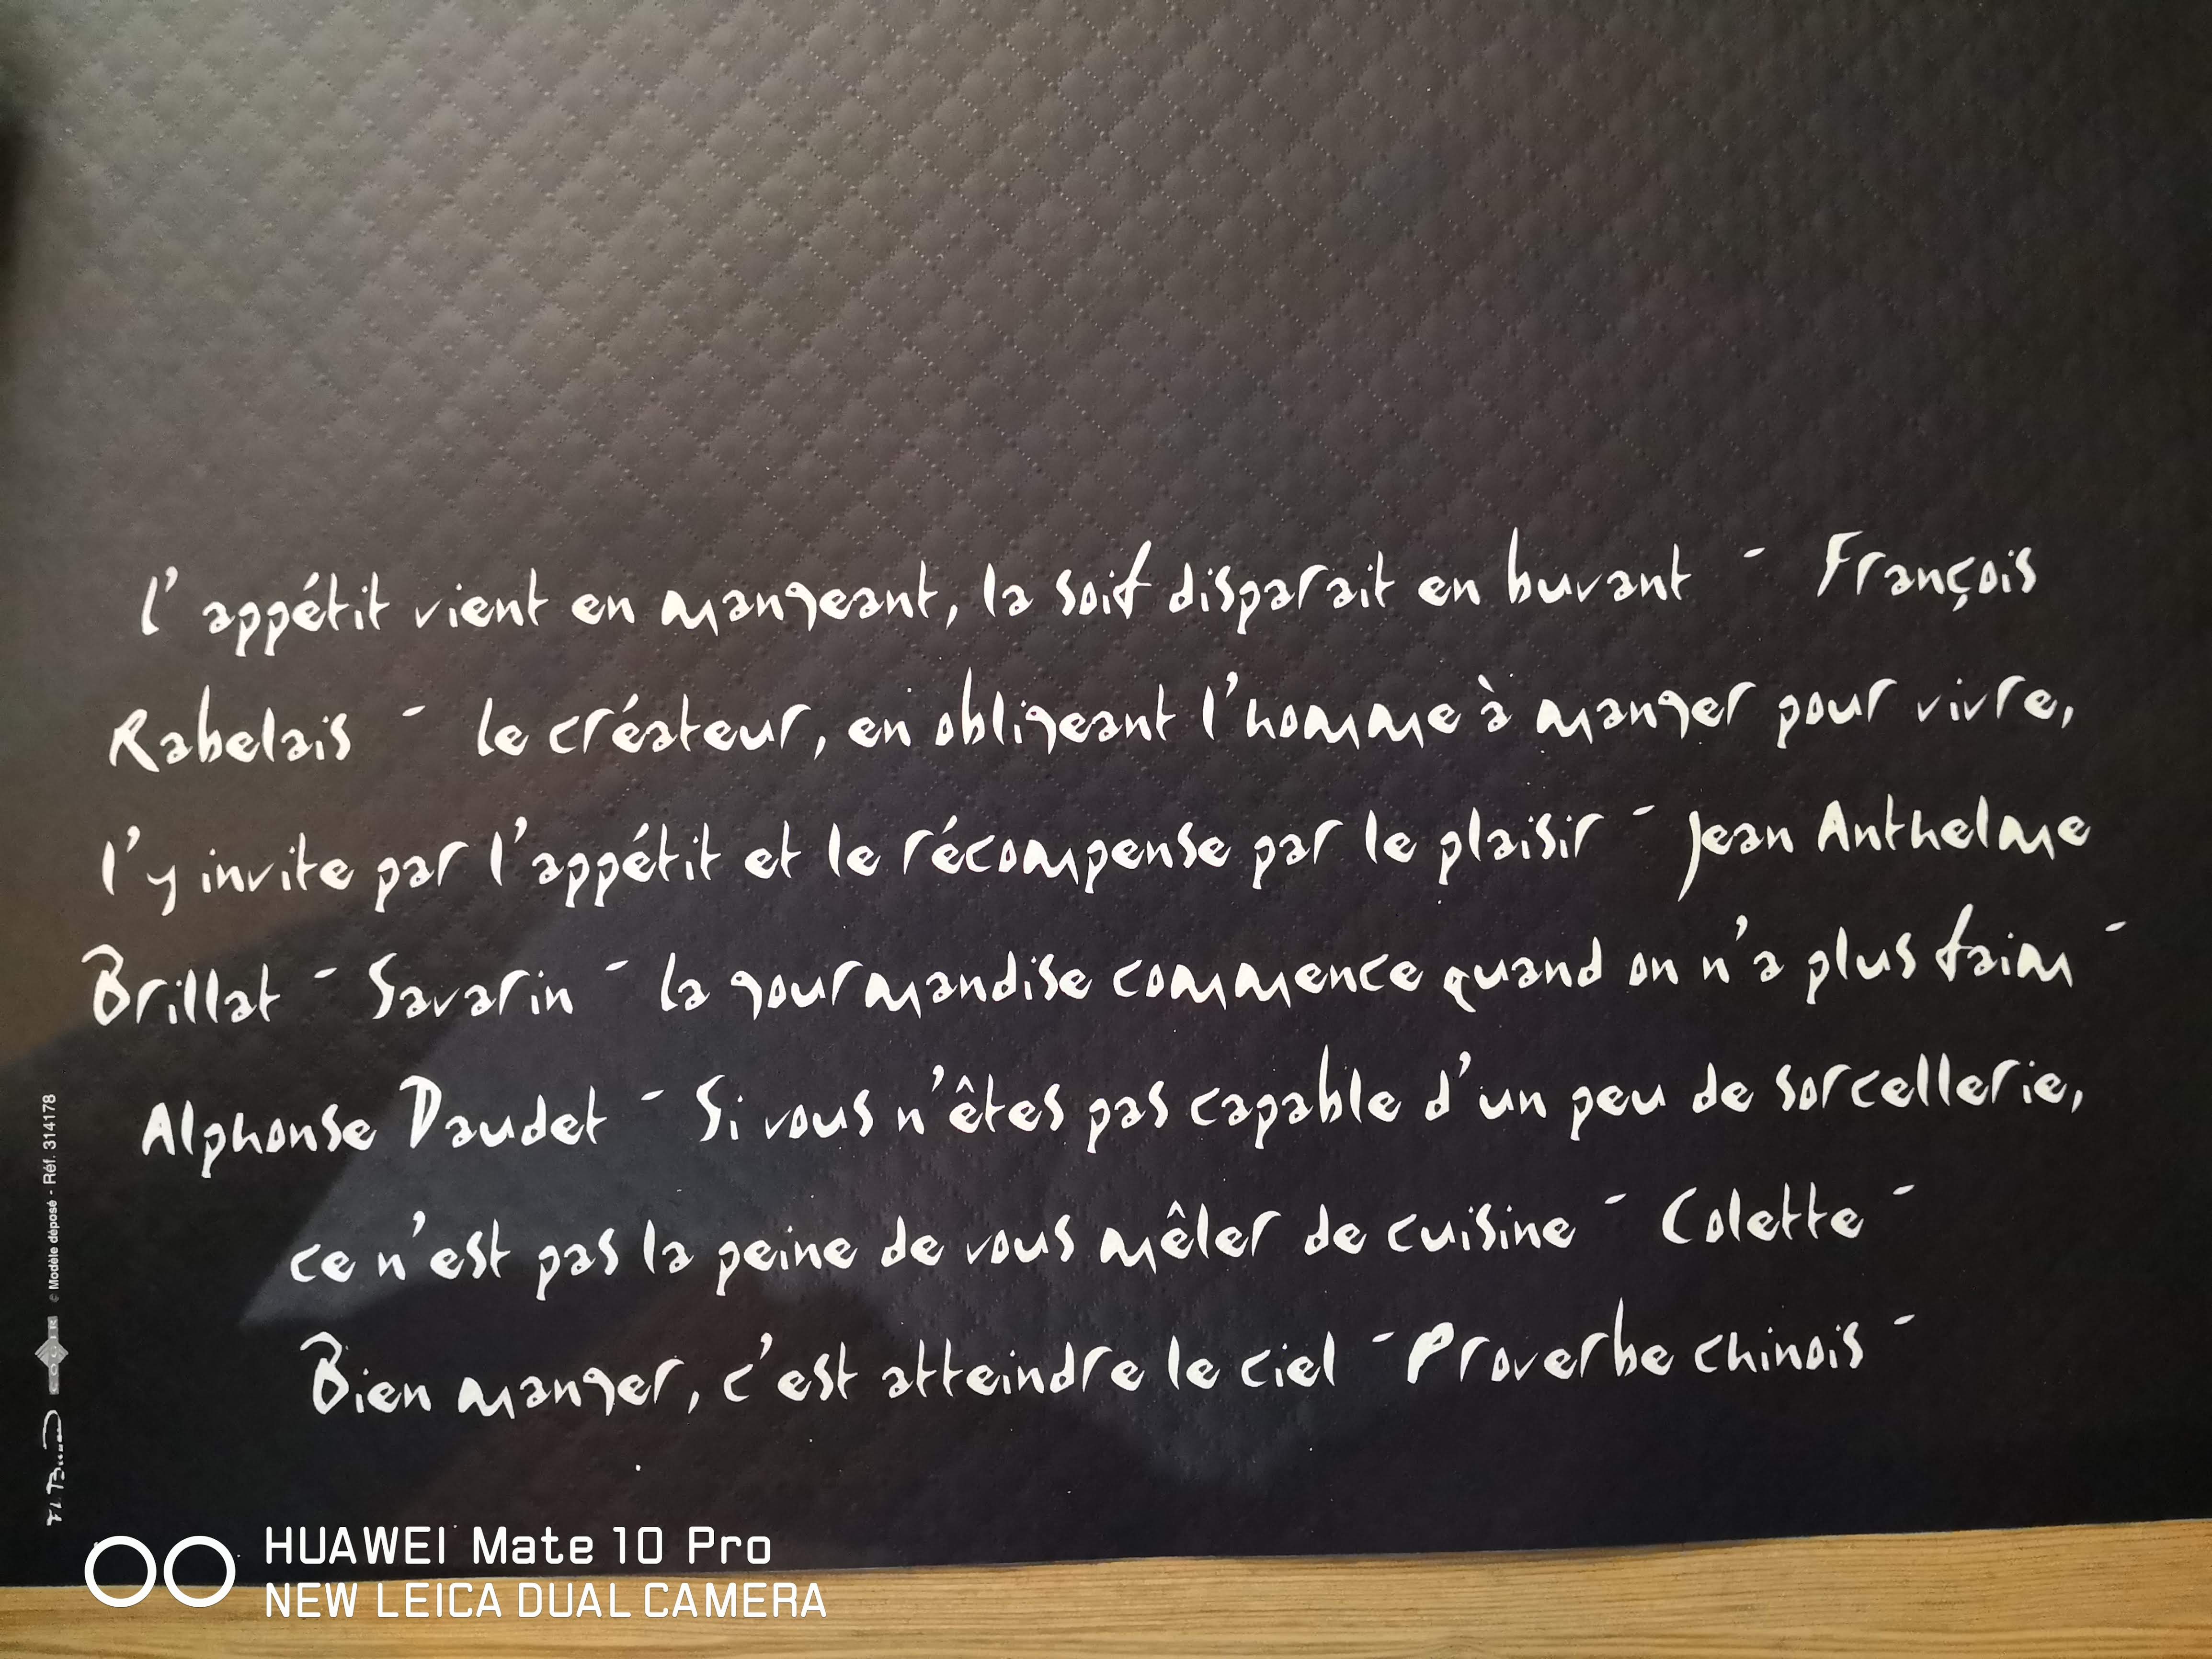 l'appétit vient en mangeant, la soif disparait en buvant - François
Rabelais - le créateur, en obligeant l'homme à manger pour vivre,
l'y invite par l'appétit et le récompense par le plaisir - Jean Anthelme
Brillat - Savarin - la gourmandise commence quand on n'a plus faim -
Alphonse Daudet - Si vous n'êtes pas capable d'un peu de sorcellerie,
ce n'est pas la peine de vous mêler de cuisine - Colette -
Bien manger, c'est atteindre le ciel - Proverbe chinois -
© Modèle déposé - Réf. 314178
HUAWEI Mate 10 Pro
NEW LEICA DUAL CAMERA